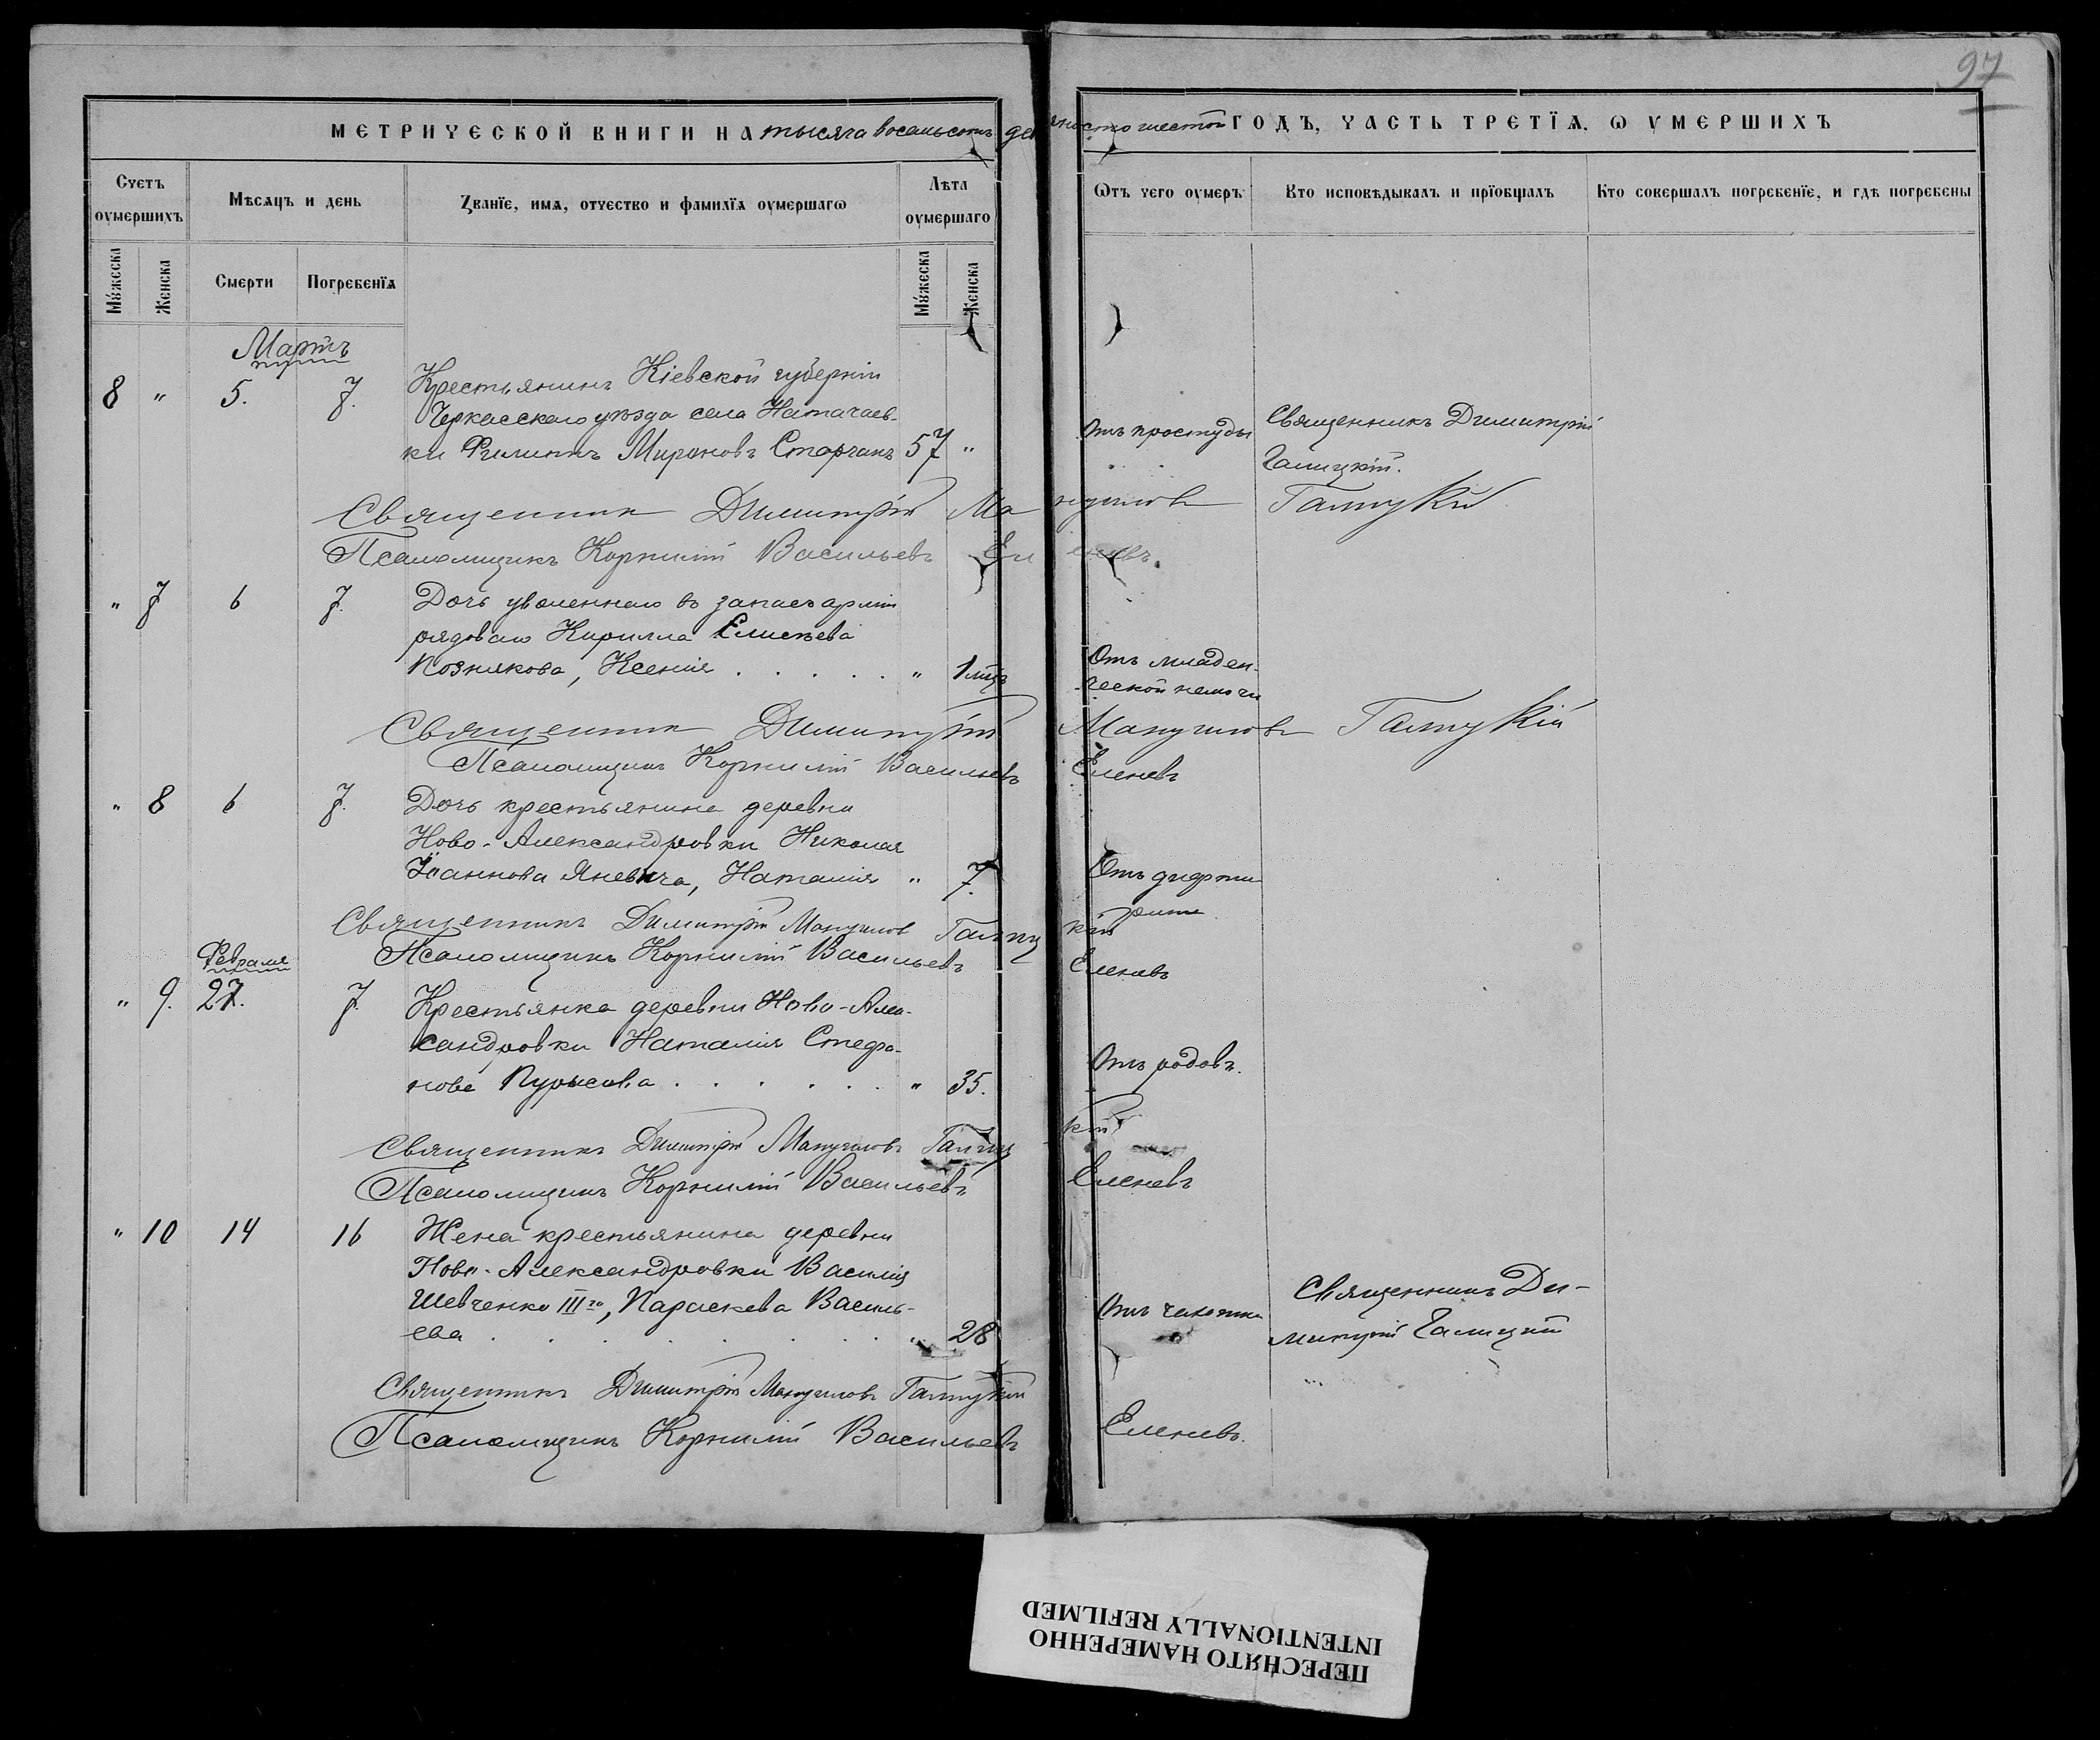 97
МЕТРИЧЕСКОЙ КНИГИ НА тысяча восемьсотъ девяносто шестой ГОДЪ, ЧАСТЬ ТРЕТЇѦ. Ѡ УМЕРШИХЪ
Счетъ оумершихъ
Мѣсѧцъ и день
Званїе, имѧ, отчество и фамилїѧ оумершагѡ
Лѣта оумершаго
Ѿтъ чего оумеръ
Кто исповѣдывалъ и прїобщалъ
Кто совершалъ погребенїе, и гдѣ погребены
Мꙋжеска
Женска
Смерти
Погребенїѧ
Мꙋжеска
Женска
Мартъ
8 " 5. 7. Крестьянинъ Кіевской губерніи
Черкасского уѣзда села Натачаев-
ки Филиппъ Мироновъ Старчакъ 57 " Отъ простуды Священникъ Димитрій
Галицкій.
Священник Димитрій Мануилов Галицкій
Псаломщикъ Корнилій Васильевъ Еленевъ.
" 7 6 7. Дочь уволеннаго въ запасъ арміи
рядоваго Кирилла Елисѣева
Познякова, Ксенія . . . . . " 1 мѣс. Отъ младен-
ческой немочи
Священник Димитрій Мануиловъ Галицкій
Псаломщикъ Корнилій Васильевъ Еленевъ
" 8 6 7. Дочь крестьянина деревни
Ново-Александровки Николая
Іоаннова Яневича, Наталія " 7. Отъ дифте
рита
Священникъ Димитрій Мануилов Галицкій
Псаломщикъ Корнилій Васильевъ Еленевъ
Февраля
" 9. 27. 7. Крестьянка деревни Ново-Алек-
сандровки Наталія Стефа-
нова Пурысова . . . . . . " 35. Отъ родовъ.
Священникъ Димитрій Мануиловъ Галицкій
Псаломщикъ Корнилій Васильевъ Еленевъ
" 10 14 16 Жена крестьянина деревни
Ново-Александровки Василія
Шевченко III го, Параскева Василь-
ева . . . . . . . " 28 Отъ чахотки Священникъ Ди-
митрій Галицкій
Священникъ Димитрій Мануиловъ Галицкій
Псаломщикъ Корнилій Васильевъ Еленевъ.
ПЕРЕСНЯТО НАМЕРЕННО
INTENTIONALLY REFILMED